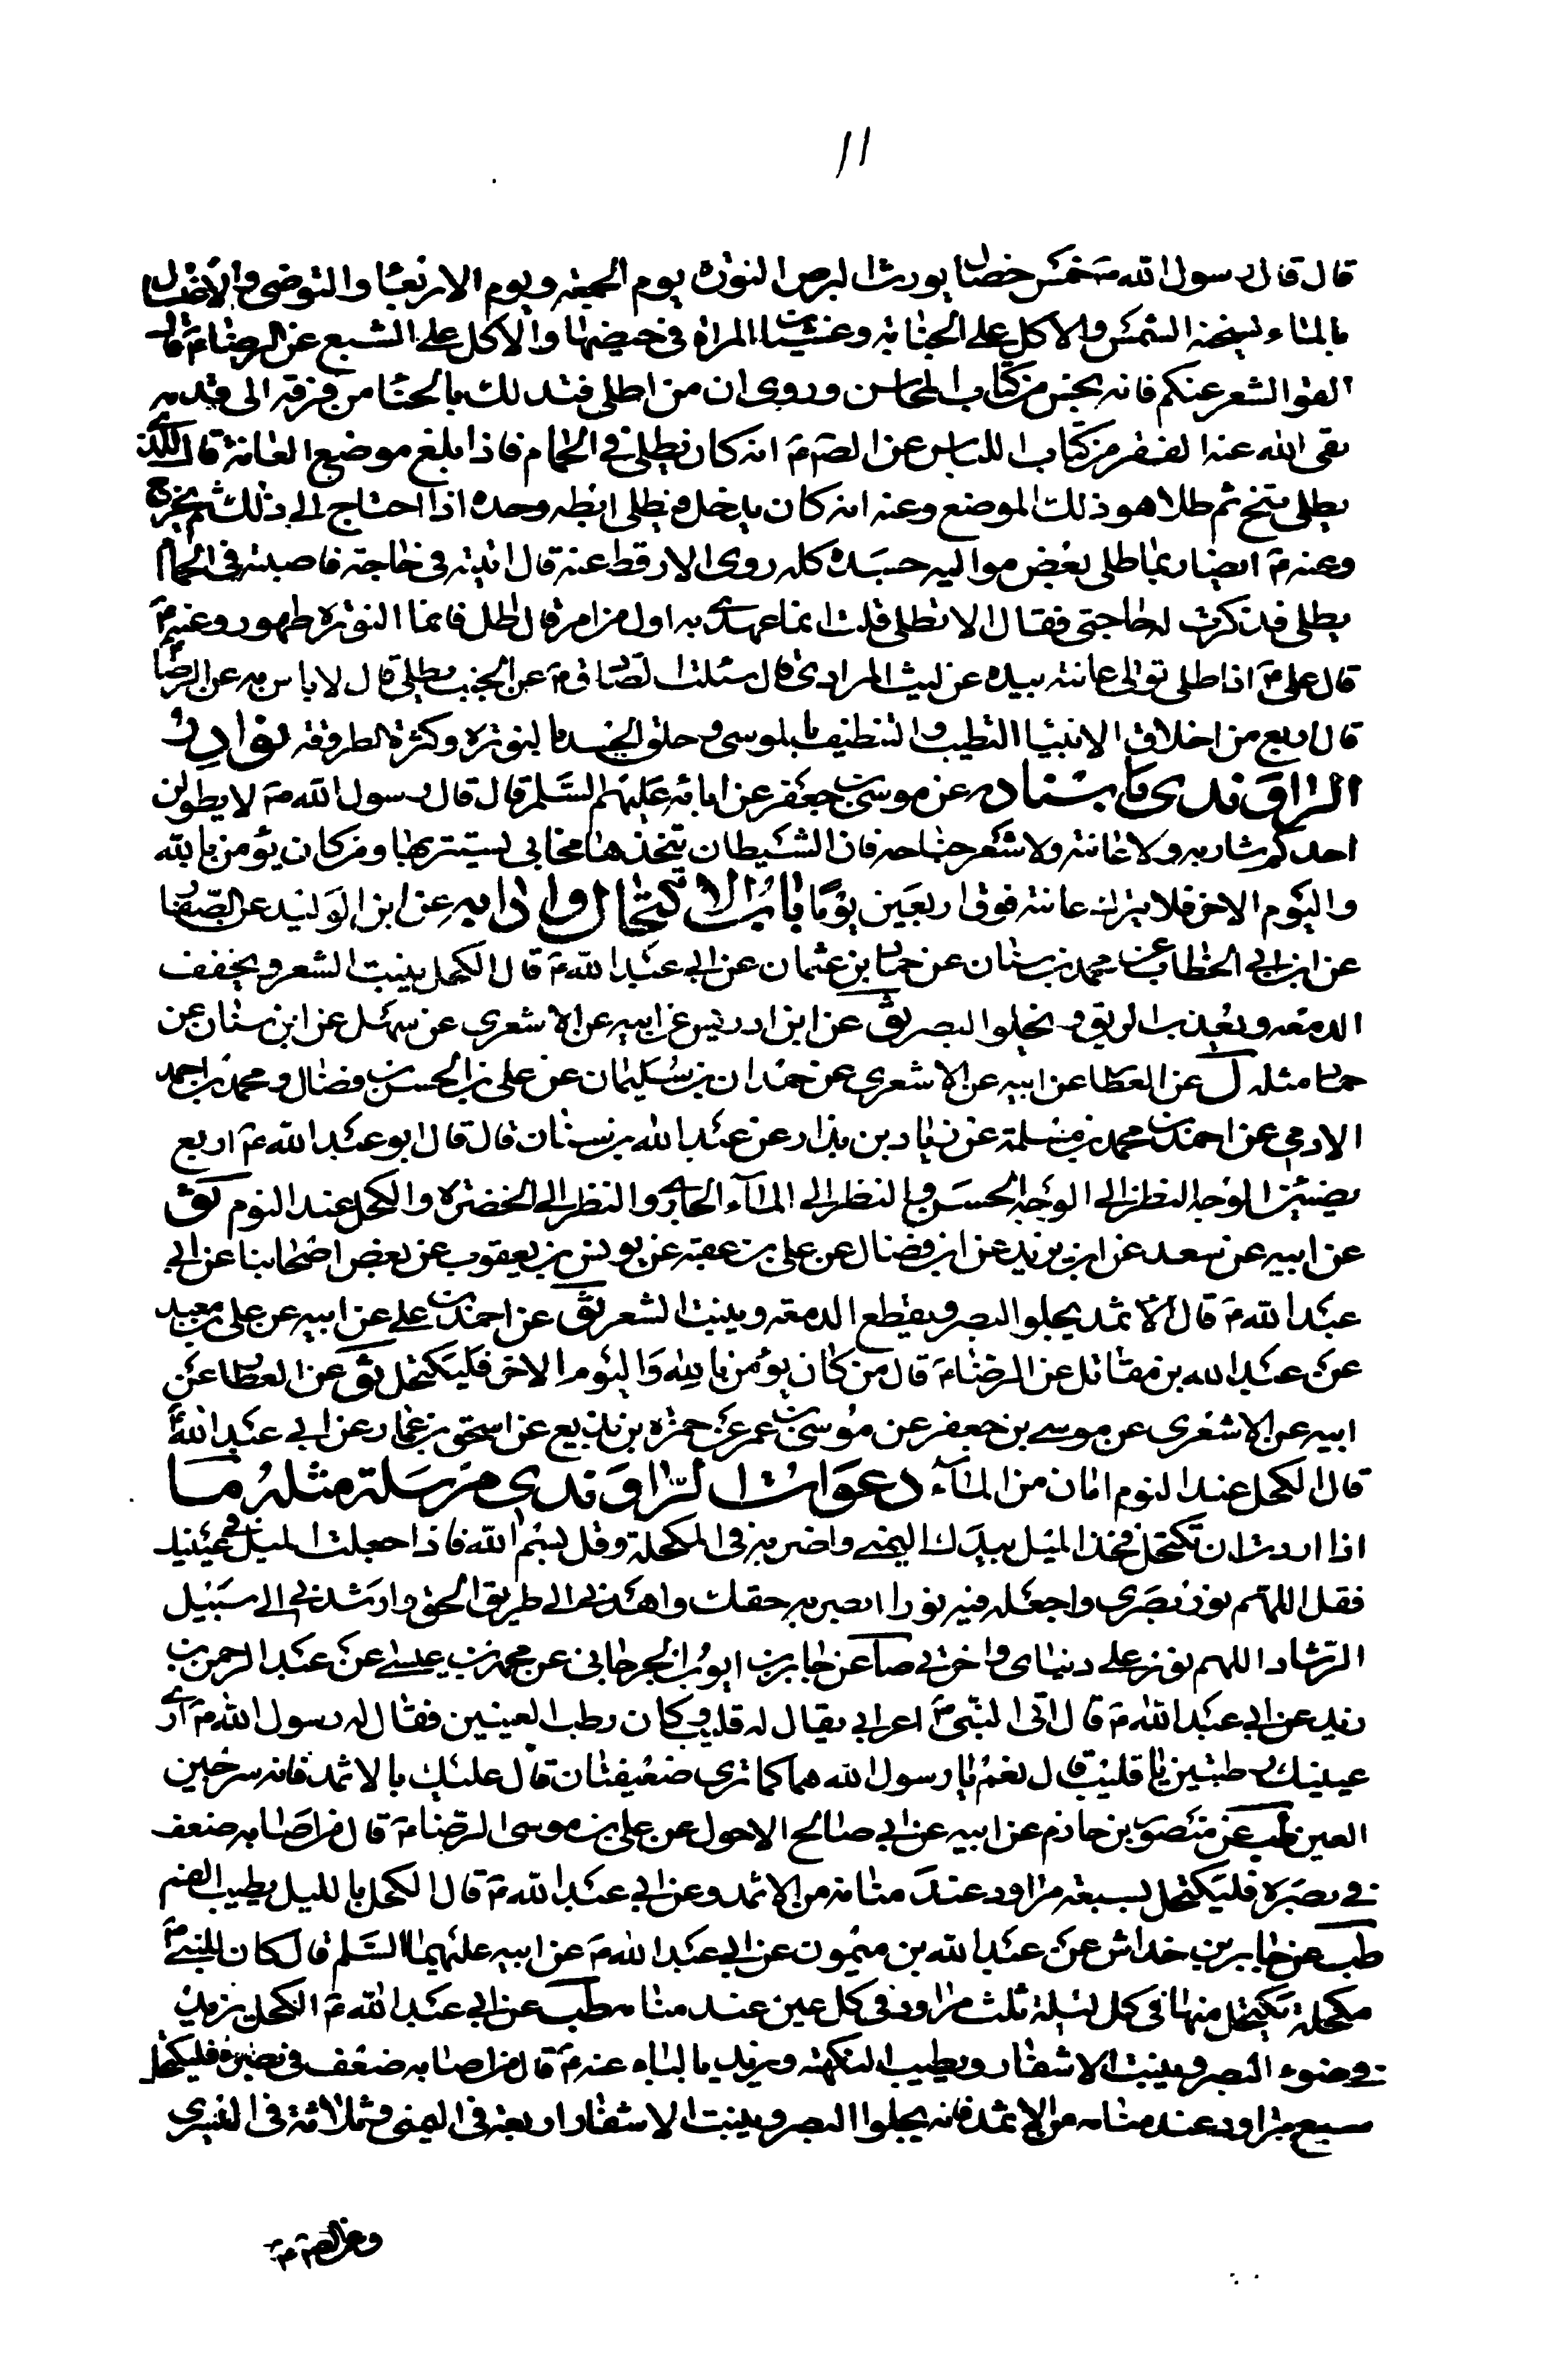 ١١
قال قال رسول الله ص خمس خصال يورث البرص النورة يوم الجمعة ويوم الاربعا والتوضى والاغتسال
بالماء تسخنه الشمس والاكل على الجنابة وغشيان المراة فى حيضها والاكل على الشبع عن الرضا ع قال
القوا الشعر عنكم فانه يحسن من كتاب المحاسن وروى ان من اطلى فتدلك بالحنا من قرنه الى قدمه
نقى الله عنه الفقر من كتاب اللباس عن الص ع انه كان يطلى فى الحمام فاذا بلغ موضع العانة قال للذى
يطلى تنح ثم طلا هو ذلك الموضع وعنه انه كان يدخل فيطلى ابطه وحده اذا احتاج الى ذلك ثم يخرج
وعنه ع ايضا ربما طلى بعض مواليه جسده كله روى الارقط عنه قال اتيته فى حاجة فاصبته فى الحمام
يطلى فذكرت له حاجتى فقال الا تطلى قلت انما عهدى به اول من امس قال اطل فانما النورة طهور وعنه ع
قال على ع اذا طلى تولى عانته بيده عن ليث المرادى قال سئلت الصادق ع عن الجنب يطلى قال لا باس به عن الرضا
قال اربع من اخلاق الانبيا التطيب والتنظيف بالموسى وحلق الجسد بالنورة وكثرة الطروقة نوادر
الراوندى باسناده عن موسى بن جعفر عن ابائه عليهم السلم قال قال رسول الله ص لا يطولن
احدكم شاربه ولا عانته ولا شعر جناحه فان الشيطان يتخذها مخابى يستتر بها ومن كان يؤمن بالله
واليوم الاخر فلا يترك عانته فوق اربعين يوما باب الاكتحال وادابه عن ابن الوليد عن الصفا
عن ابن ابى الخطاب عن محمد بن سنان عن حماد بن عثمان عن ابى عبد الله ع قال الكحل ينبت الشعر ويخفف
الدمعه ويعذب الريق ويجلوا البصر ثو عن ابن ادريس عن ابيه عن الاشعرى عن سهل عن ابن سنان عن
حماد مثله ل عن العطا عن ابيه عن الاشعرى عن حمدان بن سليمان عن على بن الحسن بن فضال ومحمد بن احمد
الادمى عن احمد بن محمد بن مسلمة عن زياد بن بندار عن عبد الله بن سنان قال قال ابو عبد الله ع اربع
يضيئن الوجه النظر الى الوجه الحسن والنظر الى الماء الجارى والنظر الى الخضرة والكحل عند النوم ثو
عن ابيه عن سعد عن ابن يزيد عن ابن فضال عن على بن عقبه عن يونس بن يعقوب عن بعض اصحابنا عن ابى
عبد الله ع قال الاثمد يجلوا البصر ويقطع الدمعه وينبت الشعر ثو عن احمد بن على عن ابيه عن على بن معبد
عن عبد الله بن مقاتل عن الرضا ع قال من كان يؤمن بالله واليوم الاخر فليكتحل ثو عن العطا عن
ابيه عن الاشعرى عن موسى بن جعفر عن موسى بن عمر عن حمزة بن بزيع عن اسحق بن عمار عن ابى عبد الله ع
قال الكحل عند النوم امان من الماء دعوات الراوندى مرسلة مثله مسا
اذا اردت ان تكتحل فخذ الميل بيدك اليمنى واضربه فى المكحلة وقل بسم الله فاذا جعلت الميل فى عينيك
فقل اللهم نور بصرى واجعل فيه نورا ابصر به حقك واهدنى الى طريق الحق وارشدنى الى سبيل
الرشاد اللهم نور على دنياى واخرتى صا عن جابر بن ايوب الجرجانى عن محمد بن عيسى عن عبد الرحمن بن
زيد عن ابى عبد الله ع قال اتى النبى ص اعرابى يقال له قليب كان رطب العينين فقال له رسول الله ص ارى
عينيك رطبتين يا قليب قال نعم يا رسول الله هما كما ترى ضعيفتان قال عليك بالاثمد فانه سرجين
العين طب عن منصور بن حازم عن ابيه عن ابى صالح الاحول عن على بن موسى الرضا ع قال من اصابه ضعف
فى بصره فليكتحل بسبعة مراود عند منامه من الاثمد وعن ابى عبد الله ع قال الكحل بالليل يطيب الفم
طب عن جابر بن خداش عن عبد الله بن ميمون عن ابى عبد الله ع عن ابيه عليهما السلم قال كان للنبى ص
مكحلة يكتحل منها فى كل ليلة ثلث مراود فى كل عين عند منامه طب عن ابى عبد الله ع الكحل يزيد
فى ضوء البصر وينبت الاشفار ويطيب النكهة ويزيد بالباه عنه ع قال من اصابه ضعف فى بصره فليكتحل
سبع مراود عند منامه من الاثمد فانه يجلوا البصر وينبت الاشفار اربعة فى اليمنى وثلاثة فى اليسرى
وعن الص ع